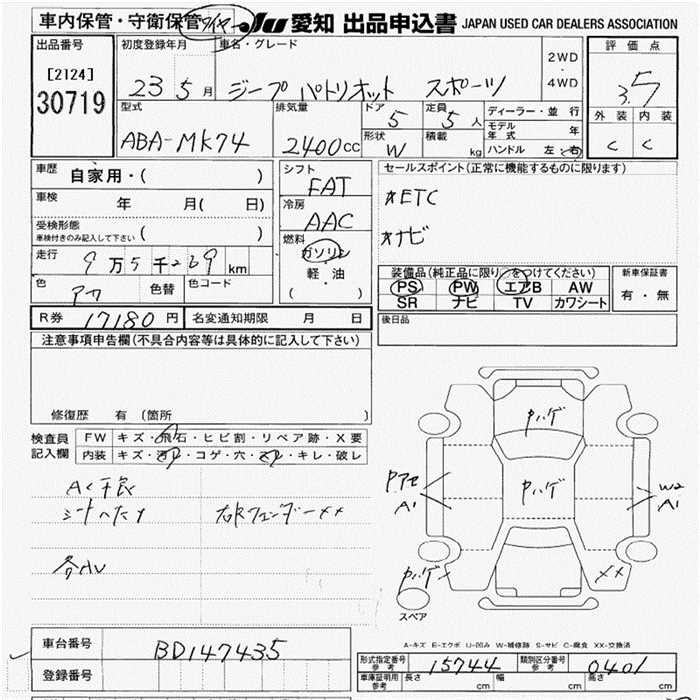 車内保管・守衛保管 タイヤ JU 愛知 出品申込書 JAPAN USED CAR DEALERS ASSOCIATION
出品番号
[2124]
30719
初度登録年月
23 5月
車名・グレード
ジープ パトリオット スポーツ
2WD
・
4WD
評価点
3.5
外装 内装
C C
型式
ABA-MK74
排気量
2400cc
ドア 5
定員 5人
形状 W
積載 kg
ディーラー・並行
モデル年式 年
ハンドル 左・右
車歴
自家用・( )
車検 年 月( 日)
受検形態
車検付きのみ記入して下さい ( )
走行
9万5千269km
色 アカ 色替 色コード
シフト
FAT
冷房
AAC
燃料
ガソリン
軽・油
( )
セールスポイント(正常に機能するものに限ります)
*ETC
*ナビ
装備品(純正品に限り○をつけてください)
PS PW エアB AW
SR ナビ TV カワシート
新車保証書
有・無
R券 17180円 名変通知期限 月 日
後日品
注意事項申告欄(不具合内容等は具体的に記入して下さい)
修復歴 有(箇所 )
検査員記入欄
FW キズ・飛石・ヒビ割・リペア跡・X要
内装 キズ・汚レ・コゲ・穴・スレ・キレ・破レ
AC不良
シートヘタリ 右Rフェンダー××
各AU
ヤハゲ
ヤハゲ
A1
W2
A1
ヤハゲ
××
スペア
A-キズ E-エクボ U-凹み W-補修跡 S-サビ C-腐食 XX-交換済
車台番号 BD147435
登録番号
形式指定番号 参考 15744 類別区分番号 参考 0401
車庫証明用 参考 長さ cm 幅 cm 高さ cm